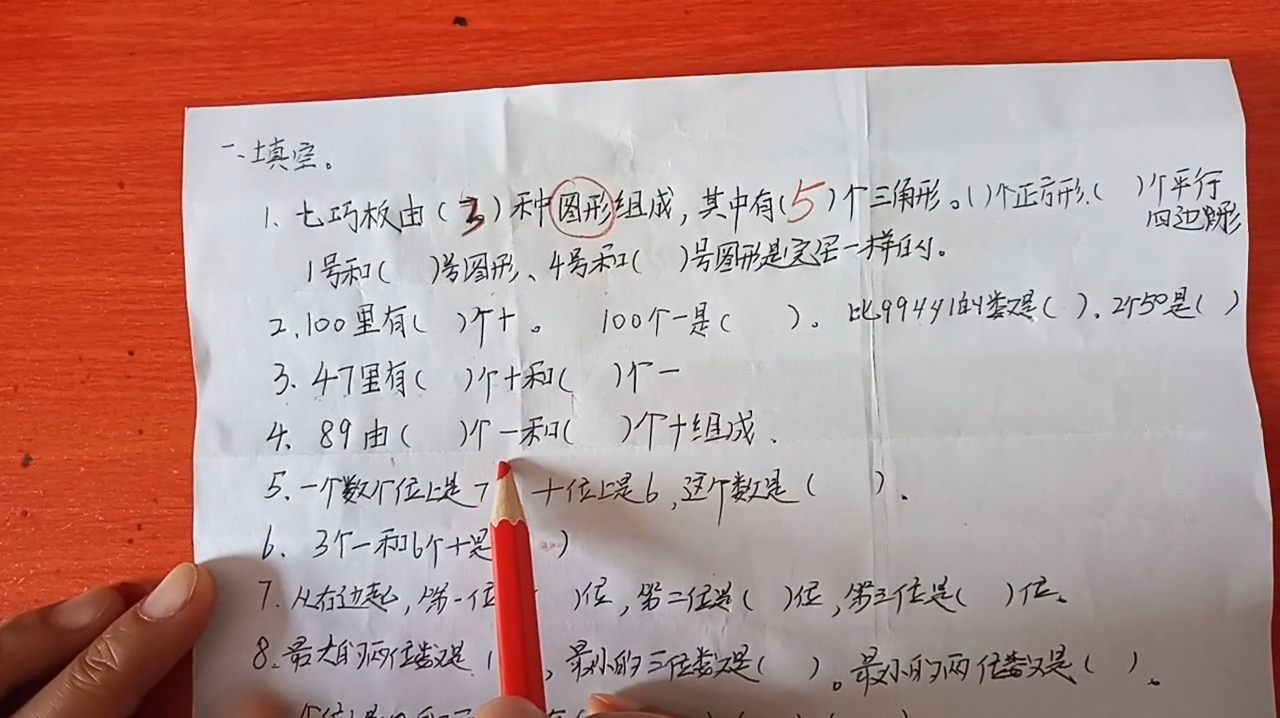 一、填空。
1. 七巧板由(3)种图形组成,其中有(5)个三角形。( )个正方形.( )个平行
四边形
1号和( )号图形、4号和( )号图形是完全一样的。
2、100里有( )个十。 100个一是( )。 比99多1的数是( ). 2个50是( )
3. 47里有( )个十和( )个一
4. 89由( )个一和( )个十组成.
5. 一个数个位上是7 十位上是6,这个数是( ).
6、3个一和6个十是 )
7. 从右边起,第一位 )位,第二位是( )位,第三位是( )位。
8. 最大的两位数是( ,最小的三位数是( )。最小的两位数是( ).